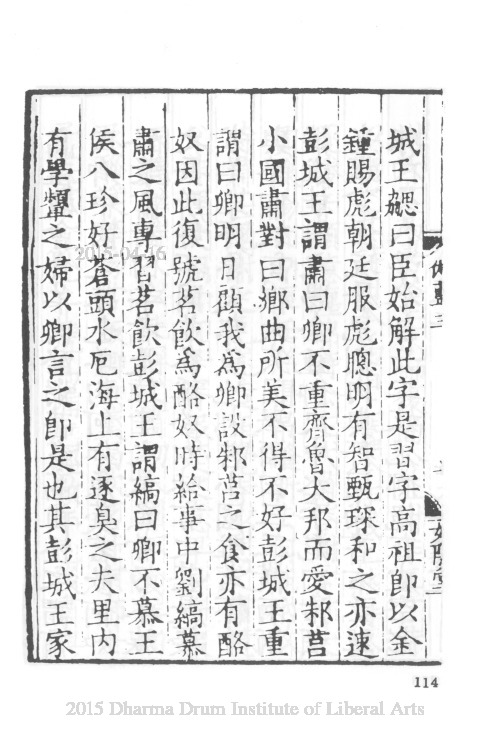 城王勰曰臣始解此字是習字高祖即以金
鍾賜彪朝廷服彪聰明有智甄琛和之亦速
彭城王謂肅曰卿不重齊魯大邦而愛邾莒
小國肅對曰鄉曲所美不得不好彭城王重
謂曰卿明日顧我為卿設邾莒之食亦有酪
奴因此復號茗飲為酪奴時給事中劉縞慕
肅之風專習茗飲彭城王謂縞曰卿不慕王
侯八珍好蒼頭水厄海上有逐臭之夫里內
有學顰之婦以卿言之即是也其彭城王家
2015-04-16
114
2015 Dharma Drum Institute of Liberal Arts